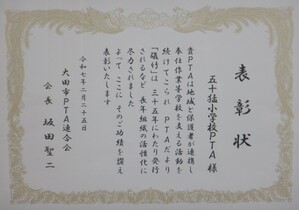 表彰状
五十猛小学校PTA 様
貴PTAは地域と保護者が連携し
奉仕作業等学校を支える活動を
続けてこられ PTAだより
「磯竹」は 三十五年にわたり発行
されるなど 長年組織の活性化に
尽力されました
よって ここに そのご功績を讃え
表彰いたします
令和七年二月二十五日
大田市PTA連合会
会長 坂田聖二